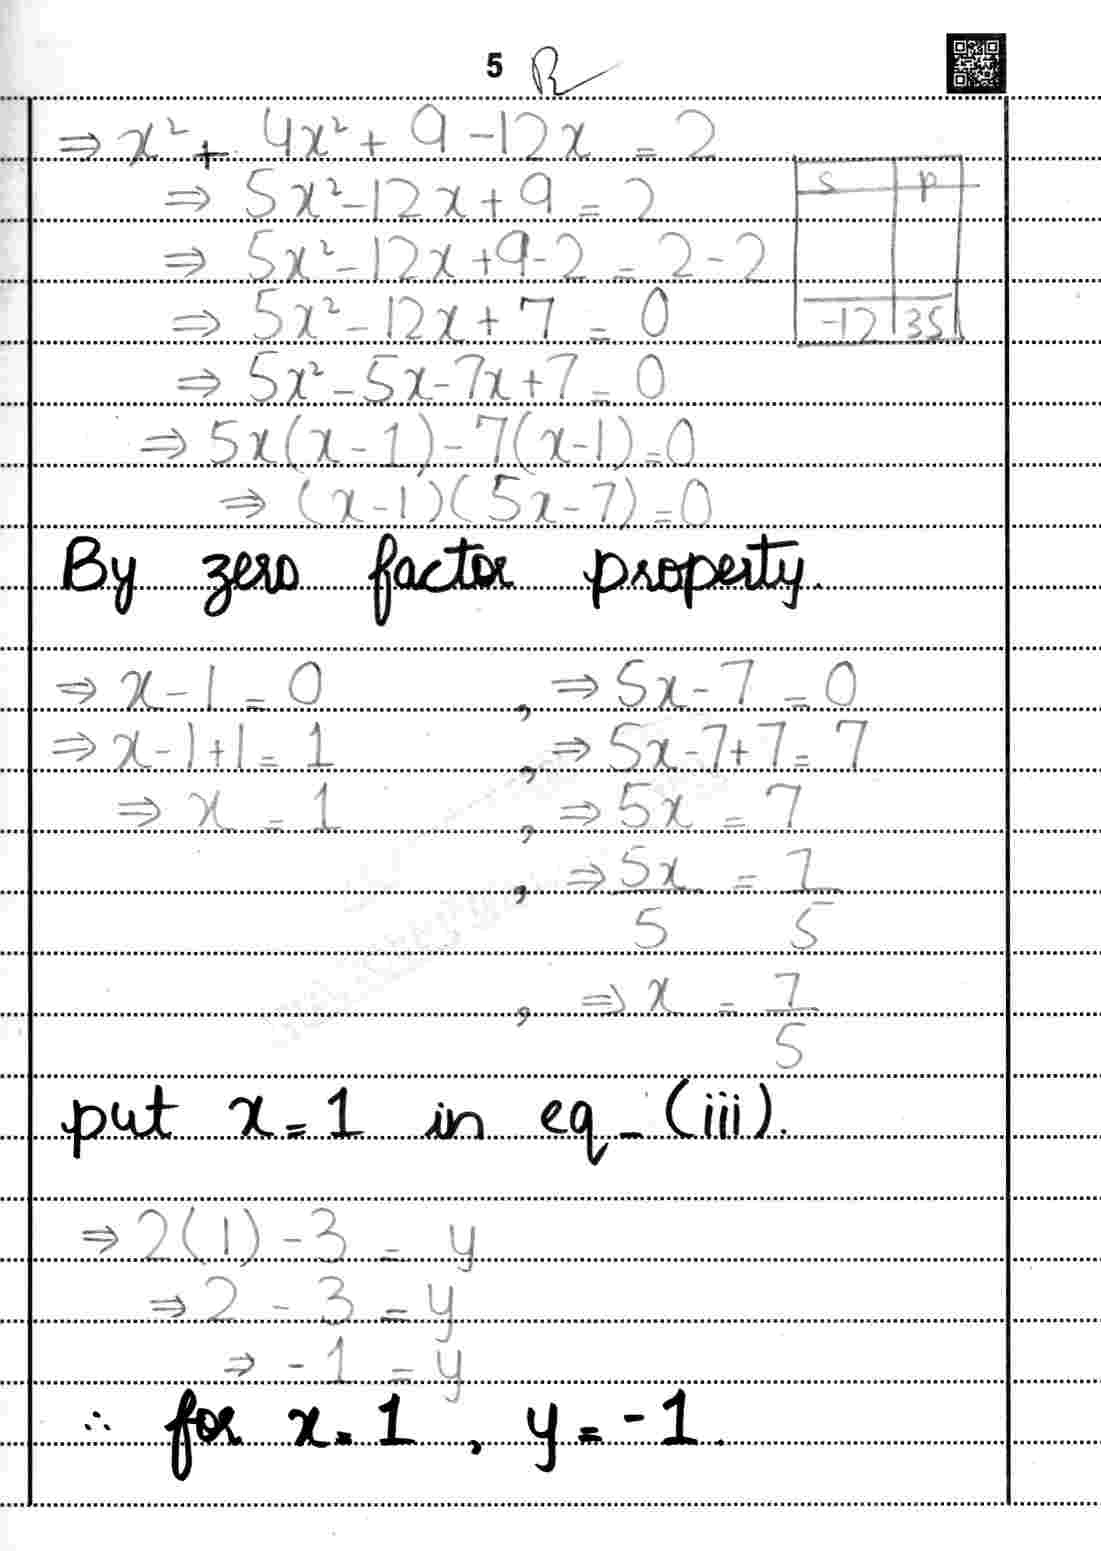 5 R
⇒ x² + 4x² + 9 - 12x = 2
⇒ 5x² - 12x + 9 = 2
S P
⇒ 5x² - 12x + 9 - 2 = 2 - 2
⇒ 5x² - 12x + 7 = 0
-12 35
⇒ 5x² - 5x - 7x + 7 = 0
⇒ 5x(x - 1) - 7(x - 1) = 0
⇒ (x - 1)(5x - 7) = 0
By zero factor property.
⇒ x - 1 = 0 , ⇒ 5x - 7 = 0
⇒ x - 1 + 1 = 1 , ⇒ 5x - 7 + 7 = 7
⇒ x = 1 , ⇒ 5x = 7
, ⇒ 5x/5 = 7/5
, ⇒ x = 7/5
put x = 1 in eq - (iii).
⇒ 2(1) - 3 = y
⇒ 2 - 3 = y
⇒ -1 = y
∴ for x = 1 , y = -1.